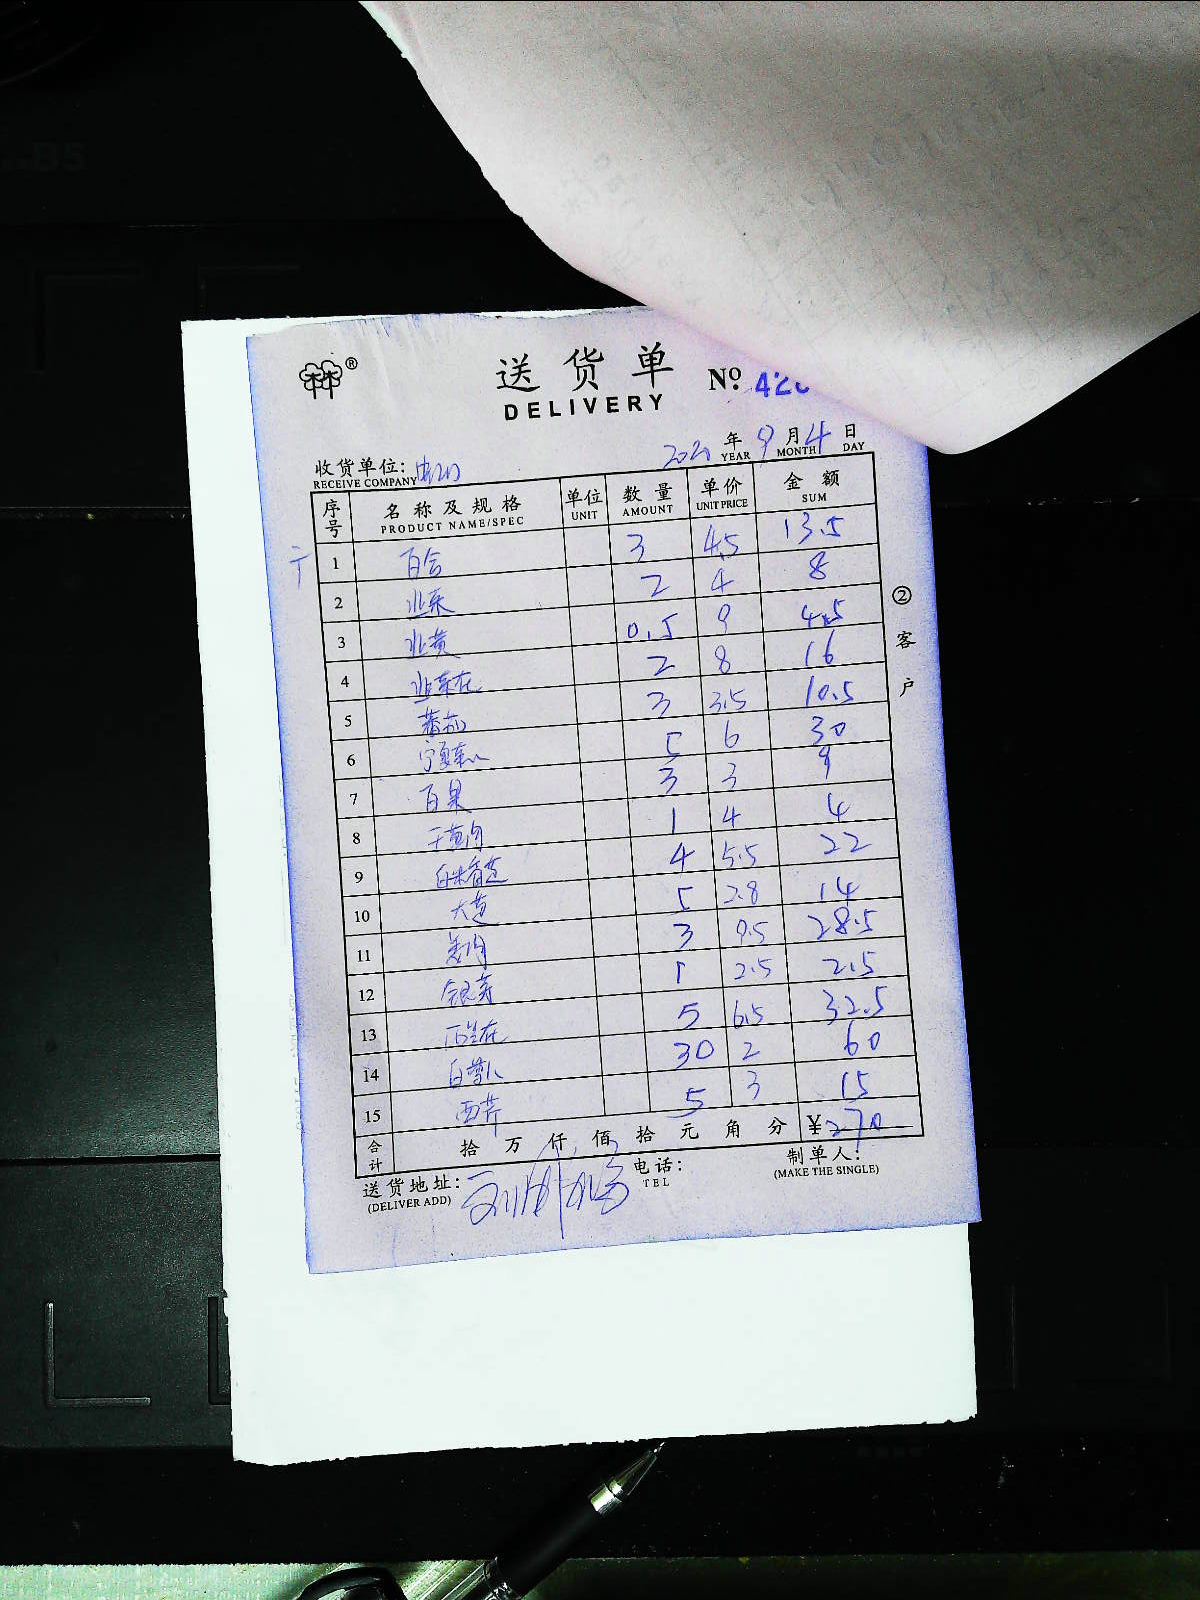 送货单 Nº 42
DELIVERY
2021 年 9 月 4 日
YEAR MONTH DAY
收货单位:
RECEIVE COMPANY
序号 名称及规格 单位 数量 单价 金额
PRODUCT NAME/SPEC UNIT AMOUNT UNIT PRICE SUM
1 百合 3 4.5 13.5
2 韭菜 2 4 8
3 韭黄 0.5 9 4.5
4 韭菜花 2 8 16
5 蕃茄 3 3.5 10.5
6 宁夏菜心 5 6 30
7 百果 3 3 9
8 干葱肉 1 4 4
9 5.5 4 22
10 大葱 5 2.8 14
11 姜肉 3 9.5 28.5
12 银芽 1 2.5 2.5
13 西兰花 5 6.5 32.5
14 白萝卜 30 2 60
15 西芹 5 3 15
合计 拾 万 仟 佰 拾 元 角 分 ¥270
送货地址: 电话: 制单人:
(DELIVER ADD) TEL (MAKE THE SINGLE)
②客户